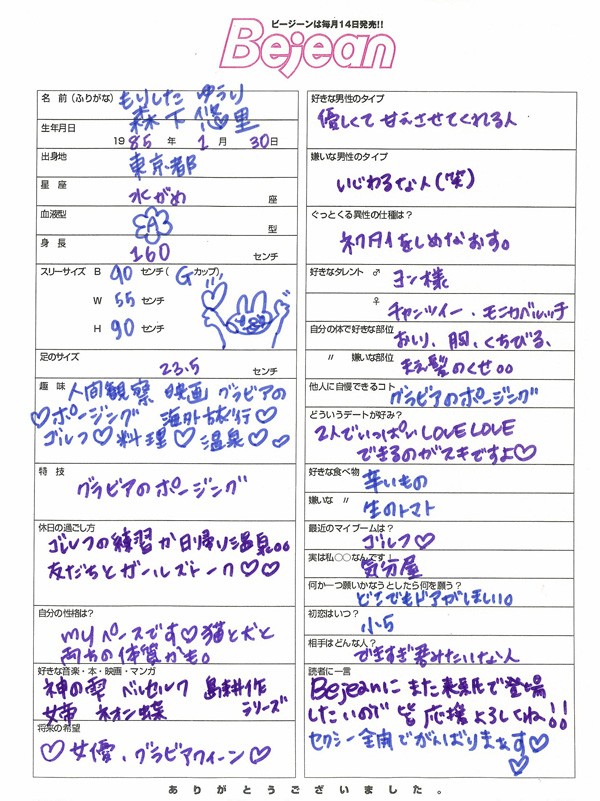 ビージーンは毎月14日発売!!
Bejean
名 前(ふりがな) もりした ゆうり
森下 悠里
生年月日
1985年 1月 30日
出身地
東京都
星 座
水がめ 座
血液型
A 型
身 長
160 センチ
スリーサイズ B 90 センチ( Gカップ)
W 55 センチ
H 90 センチ
足のサイズ
23.5 センチ
趣 味 人間観察 映画 グラビアの
♡ポージング 海外旅行♡
ゴルフ♡料理♡温泉♡♡
特 技
グラビアのポージング
休日の過ごし方
ゴルフの練習か日帰り温泉。。
友だちとガールズトーク♡♡
自分の性格は?
myペースです♡猫と犬と
両方の体質かも。
好きな音楽・本・映画・マンガ
神の雫 ベルセルク 島耕作
女帝 ネオン蝶 シリーズ
将来の希望
♡女優、グラビアクィーン♡
好きな男性のタイプ
優しくて甘えさせてくれる人
嫌いな男性のタイプ
いじわるな人(笑)
ぐっとくる異性の仕種は?
ネクタイをしめなおす。
好きなタレント ♂ ヨン様
♀ チャンツイー、モニカベルッチ
自分の体で好きな部位 おしり、胸、くちびる、
〃 嫌いな部位 まえ髪のくせ。。
他人に自慢できるコト
グラビアのポージング
どういうデートが好み?
2人でいっぱいLOVE LOVE
できるのがスキですよ♡
好きな食べ物
辛いもの
嫌いな 〃
生のトマト
最近のマイブームは?
ゴルフ♡
実は私○○なんです!
気分屋
何か一つ願いかなうとしたら何を願う?
どこでもドアがほしい。
初恋はいつ?
小5
相手はどんな人?
できすぎ君みたいな人
読者に一言
Bejeanにまた来月号で登場
したいので皆応援よろしくね!!
セクシー全開でがんばりまぁす♡
♡
ありがとうございました。